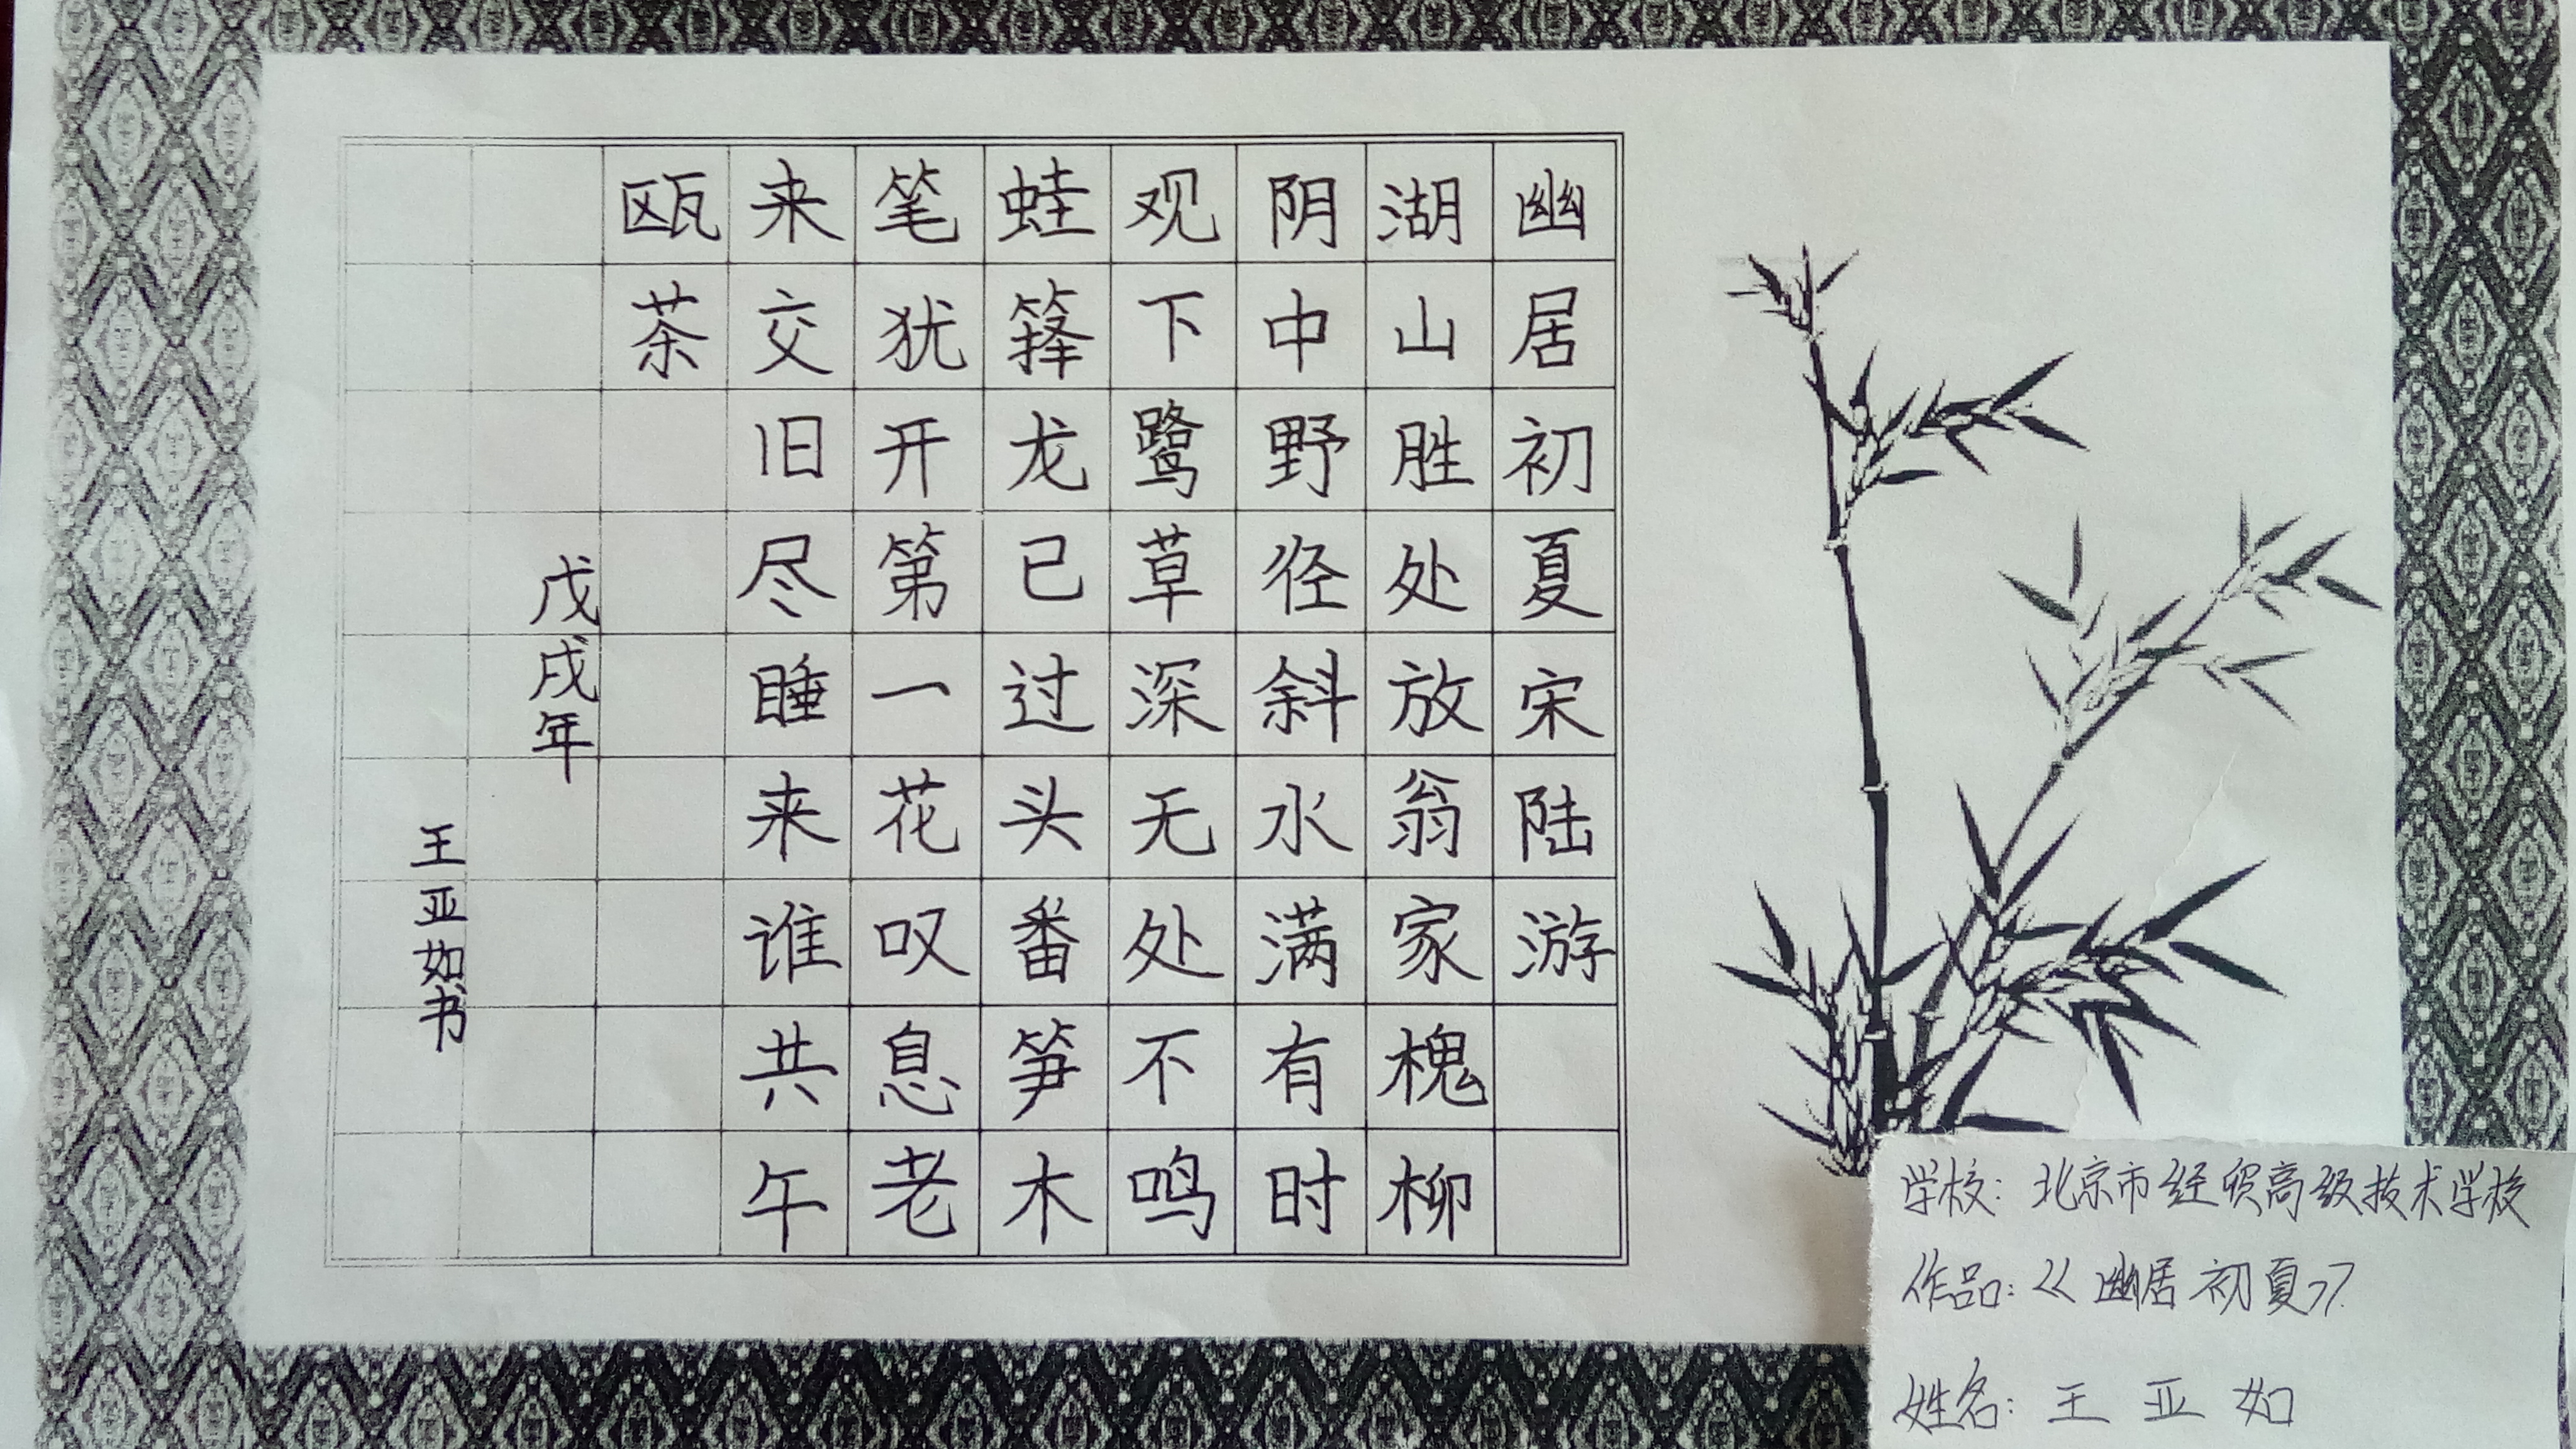 幽居初夏宋陆游
湖山胜处放翁家槐柳
阴中野径斜水满有时
观下鹭草深无处不鸣
蛙箨龙已过头番笋木
笔犹开第一花叹息老
来交旧尽睡来谁共午
瓯茶
戊戌年
王亚如书
学校：北京市经贸高级技术学校
作品：《幽居初夏》
姓名：王亚如